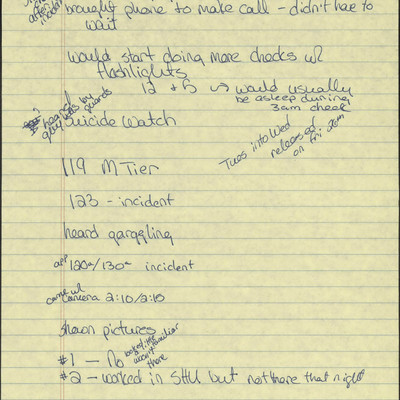 after
incident
brought phone to make call - didn't have to
wait
would start doing more checks w/
flashlights
12 + 5 → would usually
be asleep during
3am check
? heard
by guards
suicide watch
Tues into Wed
released
on Fri
119 M Tier
123 - incident
heard gargling
app 120a/130a incident
came w/
camera 2:10/2:15
shown pictures
#1 - No
there
#2 - worked in SHU but not there that night